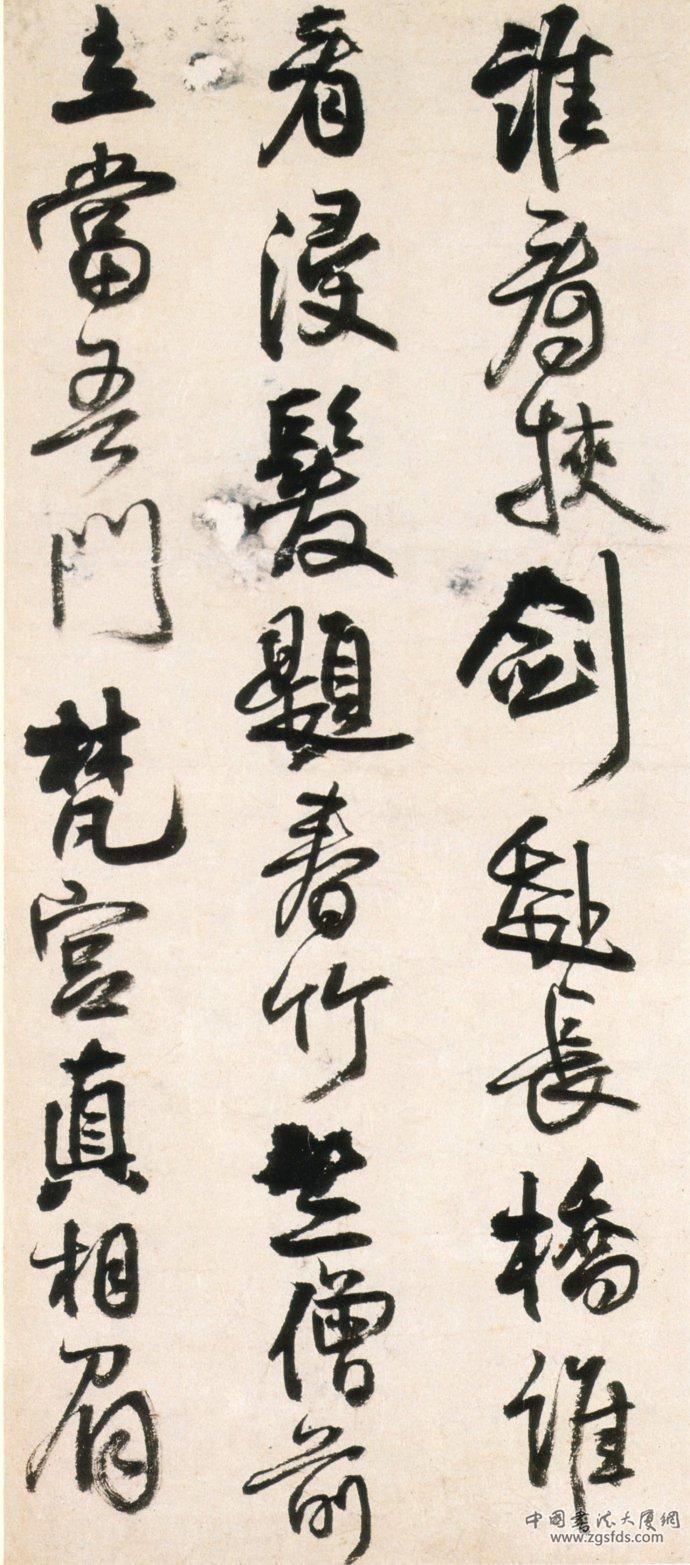 誰看挾劍赴長橋誰
看浸髮題春竹竺僧前
立當吾門梵宮真相眉
中國書法大厦網
www.zgsfds.com